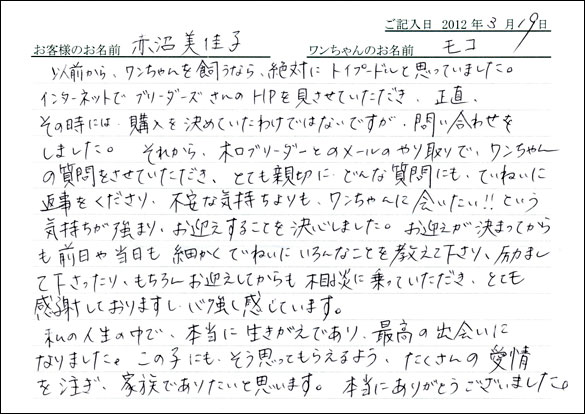 ご記入日 2012年3月19日
お客様のお名前 赤沼美佳子 ワンちゃんのお名前 モコ
以前から、ワンちゃんを飼うなら、絶対にトイプードルと思っていました。
インターネットでブリーダーズさんのHPを見させていただき、正直、
その時には、購入を決めていたわけではないですが、問い合わせを
しました。それから、木口ブリーダーとのメールのやり取りで、ワンちゃん
の質問をさせていただき、とても親切に、どんな質問にも、ていねいに
返事をくださり、不安な気持ちよりも、ワンちゃんに会いたい!!という
気持ちが強まり、お迎えすることを決心しました。お迎えが決まってから
も前日や当日も細かくていねいにいろんなことを教えて下さり、励まし
て下さったり、もちろんお迎えしてからも相談に乗っていただき、とても
感謝しておりますし、心強く感じています。
私の人生の中で、本当に生きがえであり、最高の出会いに
なりました。この子にも、そう思ってもらえるよう、たくさんの愛情
を注ぎ、家族でありたいと思います。本当にありがとうございました。